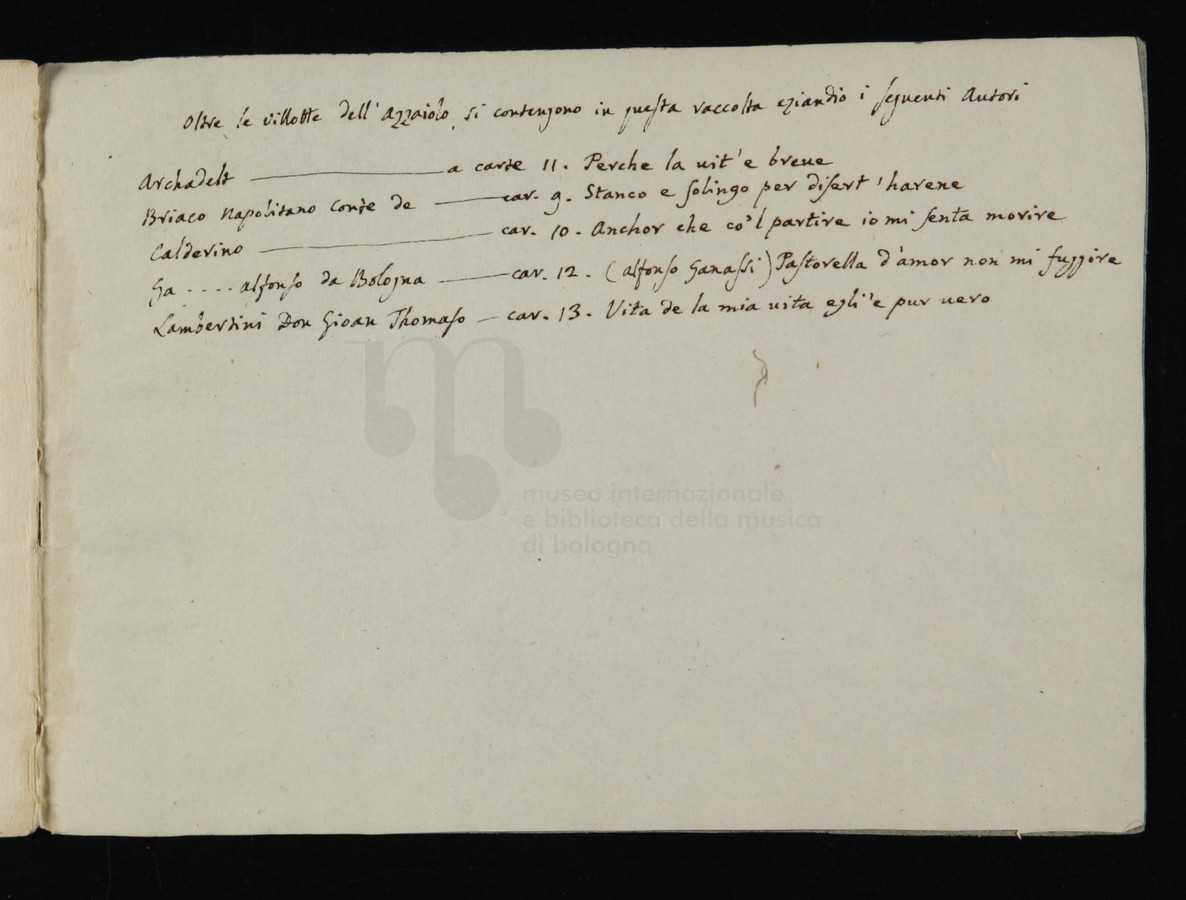 Oltre le villotte dell'Azzaiolo, si contengono in questa raccolta eziandio i seguenti Autori
Archadelt — a carte 11. Perche la vit'e breve
Briaco Napolitano Conte de — car. 9. Stanco e solingo per disert'harene
Calderino — car. 10. Anchor che co'l partire io mi senta morire
Ga .... alfonso da Bologna — car. 12. (alfonso Ganassi) Pastorella d'amor non mi fuggire
Lambertini Don Gioan Thomaso — car. 13. Vita de la mia vita egli'e pur vero
museo internazionale
e biblioteca della musica
di bologna